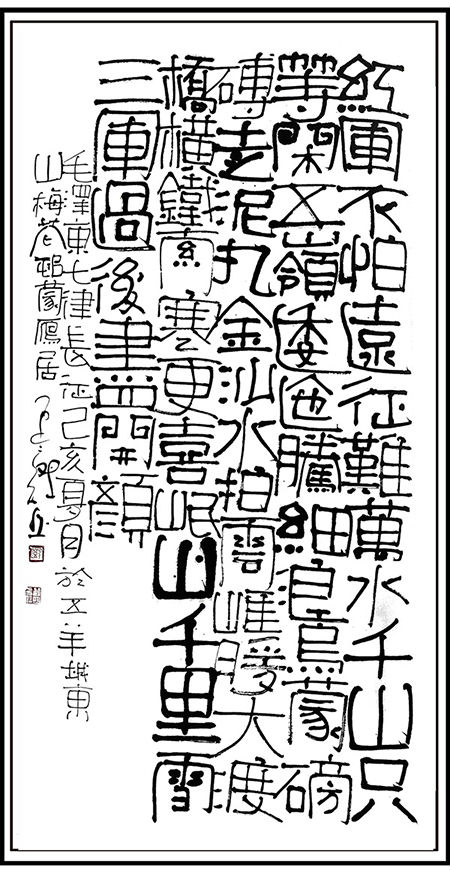 紅軍不怕遠征難萬水千山只
等閑五嶺逶迤騰細浪烏蒙磅
礴走泥丸金沙水拍雲崖暖大渡
橋橫鐵索寒更喜岷山千里雪
三軍過後盡開顏
毛澤東七律長征己亥夏月於五羊城東
山梅花邨蒙居